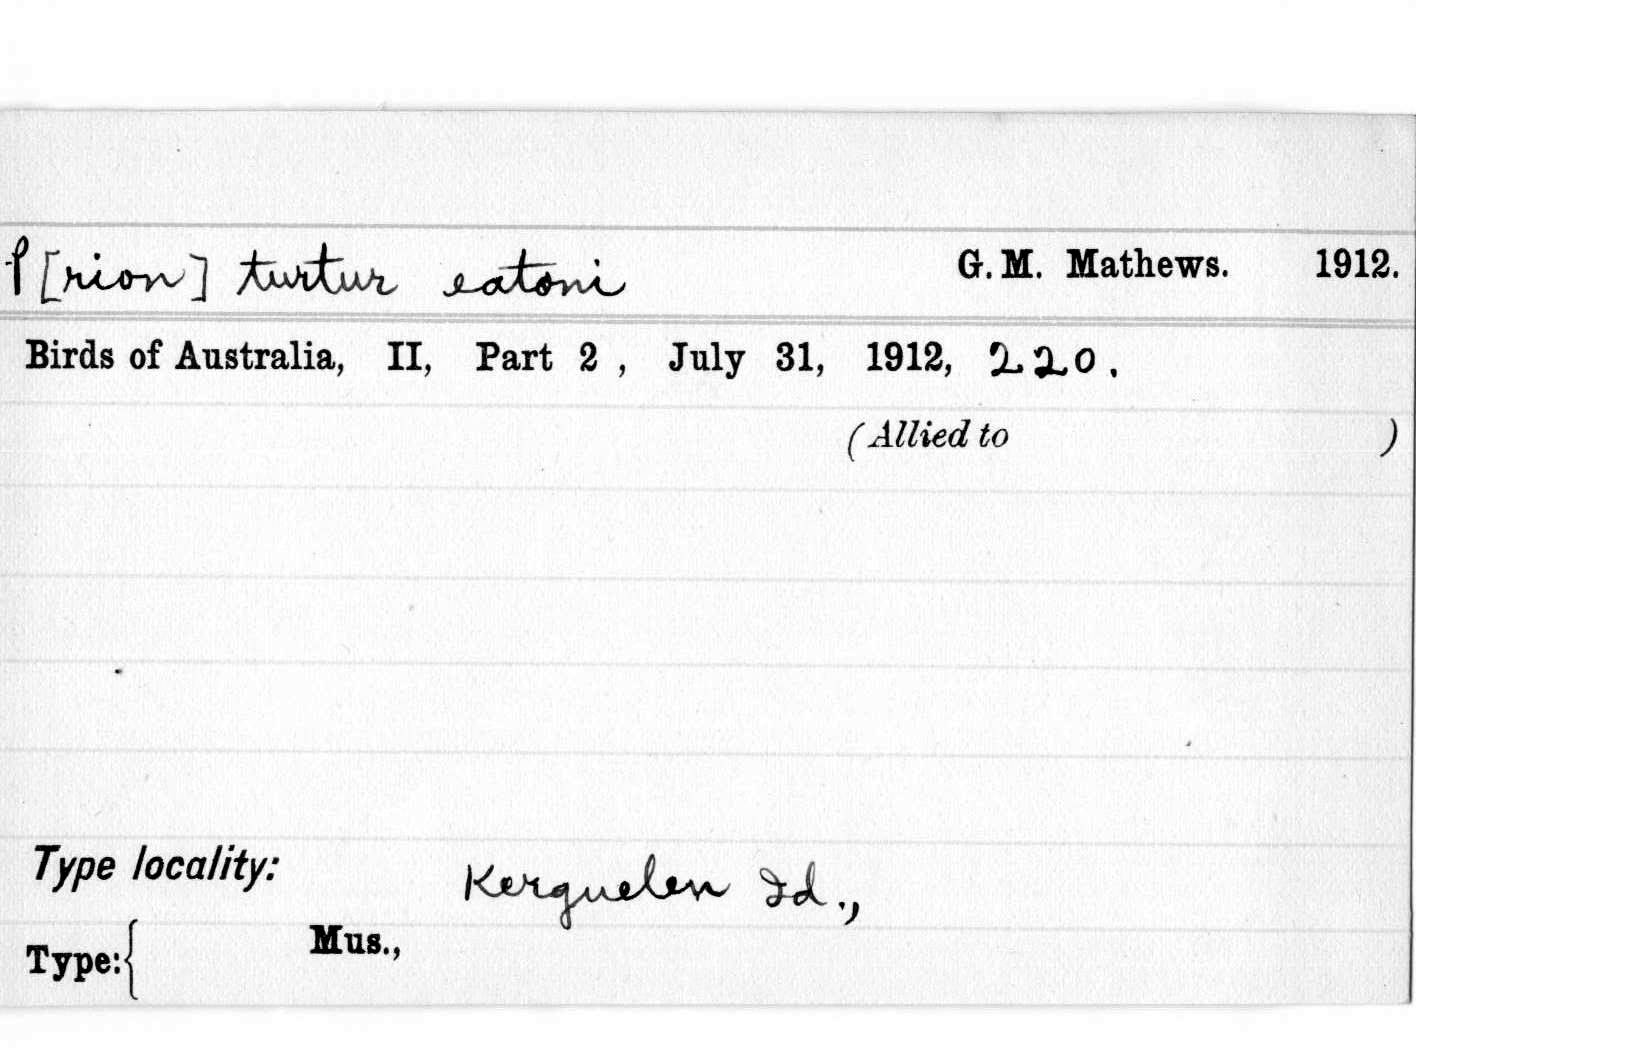 P[rion] turtur eatoni G. M. Mathews. 1912.
Birds of Australia, II, Part 2 , July 31, 1912, 220.
(Allied to )
Type locality: Kerguelen Id.,
Type:{ Mus.,